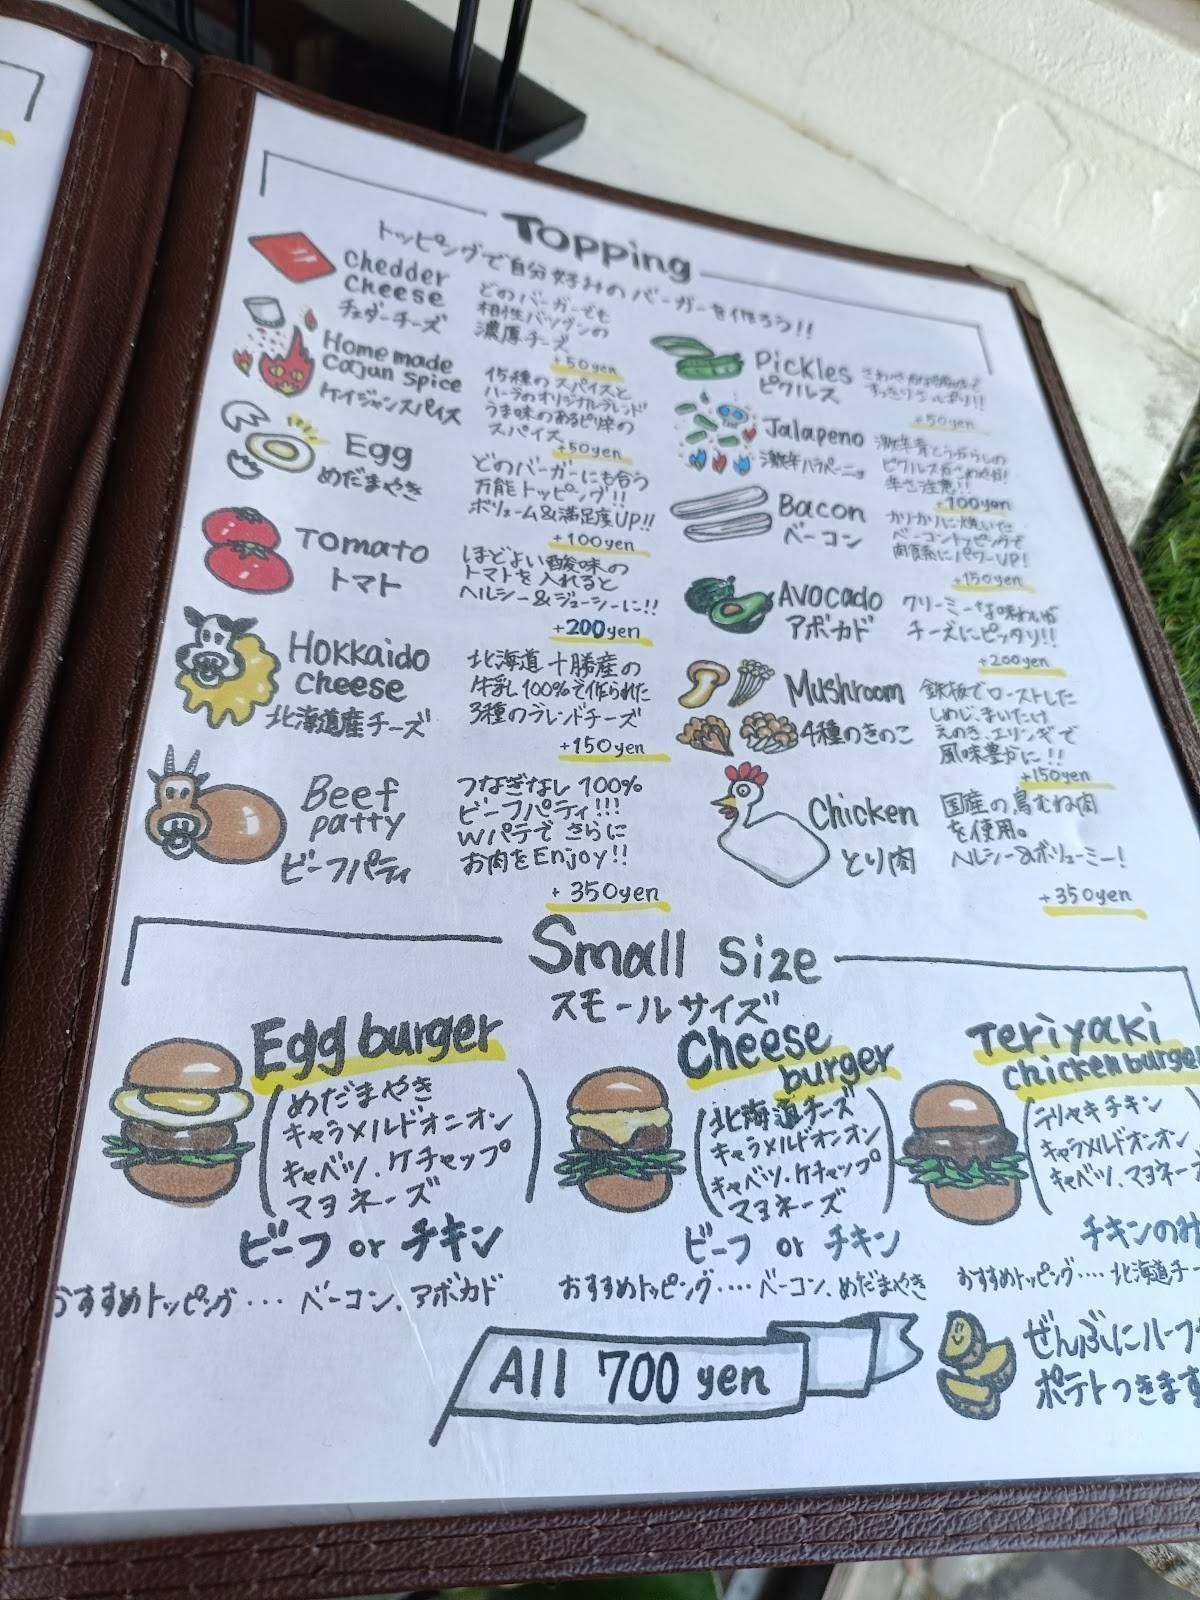 Topping
トッピングで自分好みのバーガーを作ろう!!
Chedder
Cheese
チェダーチーズ
どのバーガーでも
相性バツグンの
濃厚チーズ
+50yen
Home made
Cajun Spice
ケイジャンスパイス
15種のスパイスと
ハーブのオリジナルブレンド
うま味のあるピリ辛の
スパイス
+50yen
Egg
めだまやき
どのバーガーにも合う
万能トッピング!!
ボリューム&満足度UP!!
+100yen
Tomato
トマト
ほどよい酸味の
トマトを入れると
ヘルシー&ジューシーに!!
+200yen
Hokkaido
Cheese
北海道産チーズ
北海道十勝産の
牛乳100%で作られた
3種のブレンドチーズ
+150yen
Beef
patty
ビーフパティ
つなぎなし100%
ビーフパティ!!!
Wパテでさらに
お肉をEnjoy!!
+350yen
Pickles
ピクルス
+50yen
Jalapeno
激辛ハラペーニョ
激辛青とうがらしの
辛さ注意!!
+100yen
Bacon
ベーコン
カリカリに焼いた
ベーコントッピングで
肉食系にパワーUP!
+150yen
Avocado
アボカド
クリーミーな味わいが
チーズにピッタリ!!
+200yen
Mushroom
4種のきのこ
鉄板でローストした
しめじ、まいたけ
えのき、エリンギで
風味豊かに!!
+150yen
Chicken
とり肉
国産の鳥むね肉
を使用。
ヘルシー&ボリューミー!
+350yen
Small Size
スモールサイズ
Egg burger
めだまやき
キャラメルドオニオン
キャベツ.ケチャップ
マヨネーズ
ビーフ or チキン
おすすめトッピング... ベーコン、アボカド
Cheese
burger
北海道チーズ
キャラメルドオンオン
キャベツ.ケチャップ
マヨネーズ
ビーフ or チキン
おすすめトッピング.... ベーコン、めだまやき
Teriyaki
chicken burger
テリヤキチキン
キャラメルドオンオン
キャベツ、マヨネーズ
チキンのみ
おすすめトッピング.... 北海道チー
All 700 yen
ぜんぶにハーフ
ポテトつきます